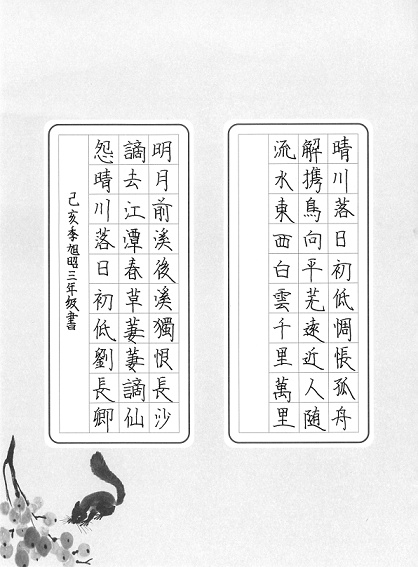 晴川落日初低惆悵孤舟
解携鳥向平芜遠近人随
流水東西白雲千里萬里
明月前溪後溪獨恨長沙
謫去江潭春草萋萋謫仙
怨晴川落日初低劉長卿
己亥季旭昭三年级書